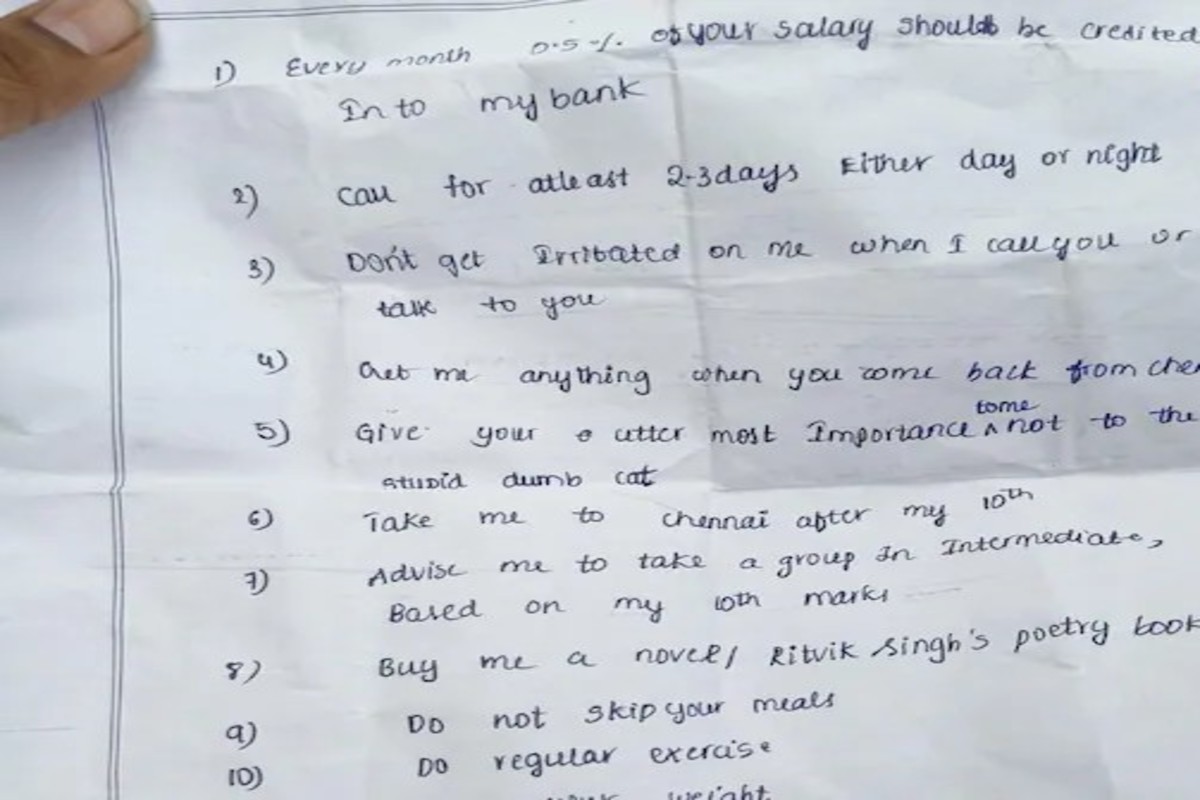 1) Every month 0.5 %. of your salary should be credited
Into my bank
2) Call for atleast 2-3 days Either day or night
3) Don't get Irritated on me when I call you or
talk to you
4) Get me anything when you come back from
5) Give your utter most Importance ^ tome not to the
stupid dumb cat
6) Take me to chennai after my 10th
7) Advise me to take a group In Intermediate,
Based on my 10th marks
8) Buy me a novel/ Ritvik Singh's poetry book
9) Do not skip your meals
10) Do regular exercise
weight